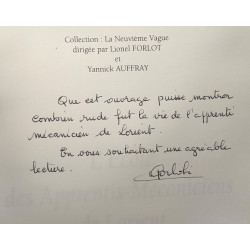 Collection : La Neuvième Vague
dirigée par Lionel FORLOT
et
Yannick AUFFRAY
Que cet ouvrage puisse montrer
combien rude fut la vie de l'apprenti
mécanicien de Lorient.
En vous souhaitant une agréable
lecture.